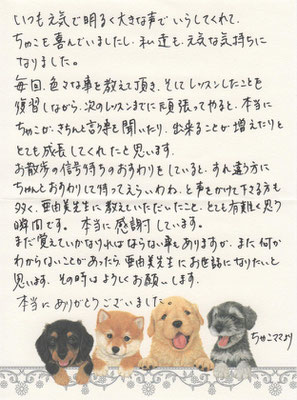 いつも元気で明るく大きな声でいらしてくれて、
ちゃこも喜んでいましたし、私達も、元気な気持ちに
なりました。
毎回、色々な事を教えて頂き、そしてレッスンしたことを
復習しながら、次のレッスンまでに頑張ってやると、本当に
ちゃこが、きちんと言う事を聞いたり、出来ることが増えたりと
とても成長してくれたと思います。
お散歩の信号待ちのおすわりをしていると、すれ違う方に
ちゃんとおすわりして待ってえらいわね、と声をかけて下さる方も
多く、亜由美先生に教えていただいたこと、とても有難く思う
瞬間です。本当に感謝しています。
まだ覚えていかなければならない事もありますが、また何か
わからないことがあったら、亜由美先生にお世話になりたいと
思います。その時はよろしくお願いします。
本当にありがとうございました
ちゃこママより